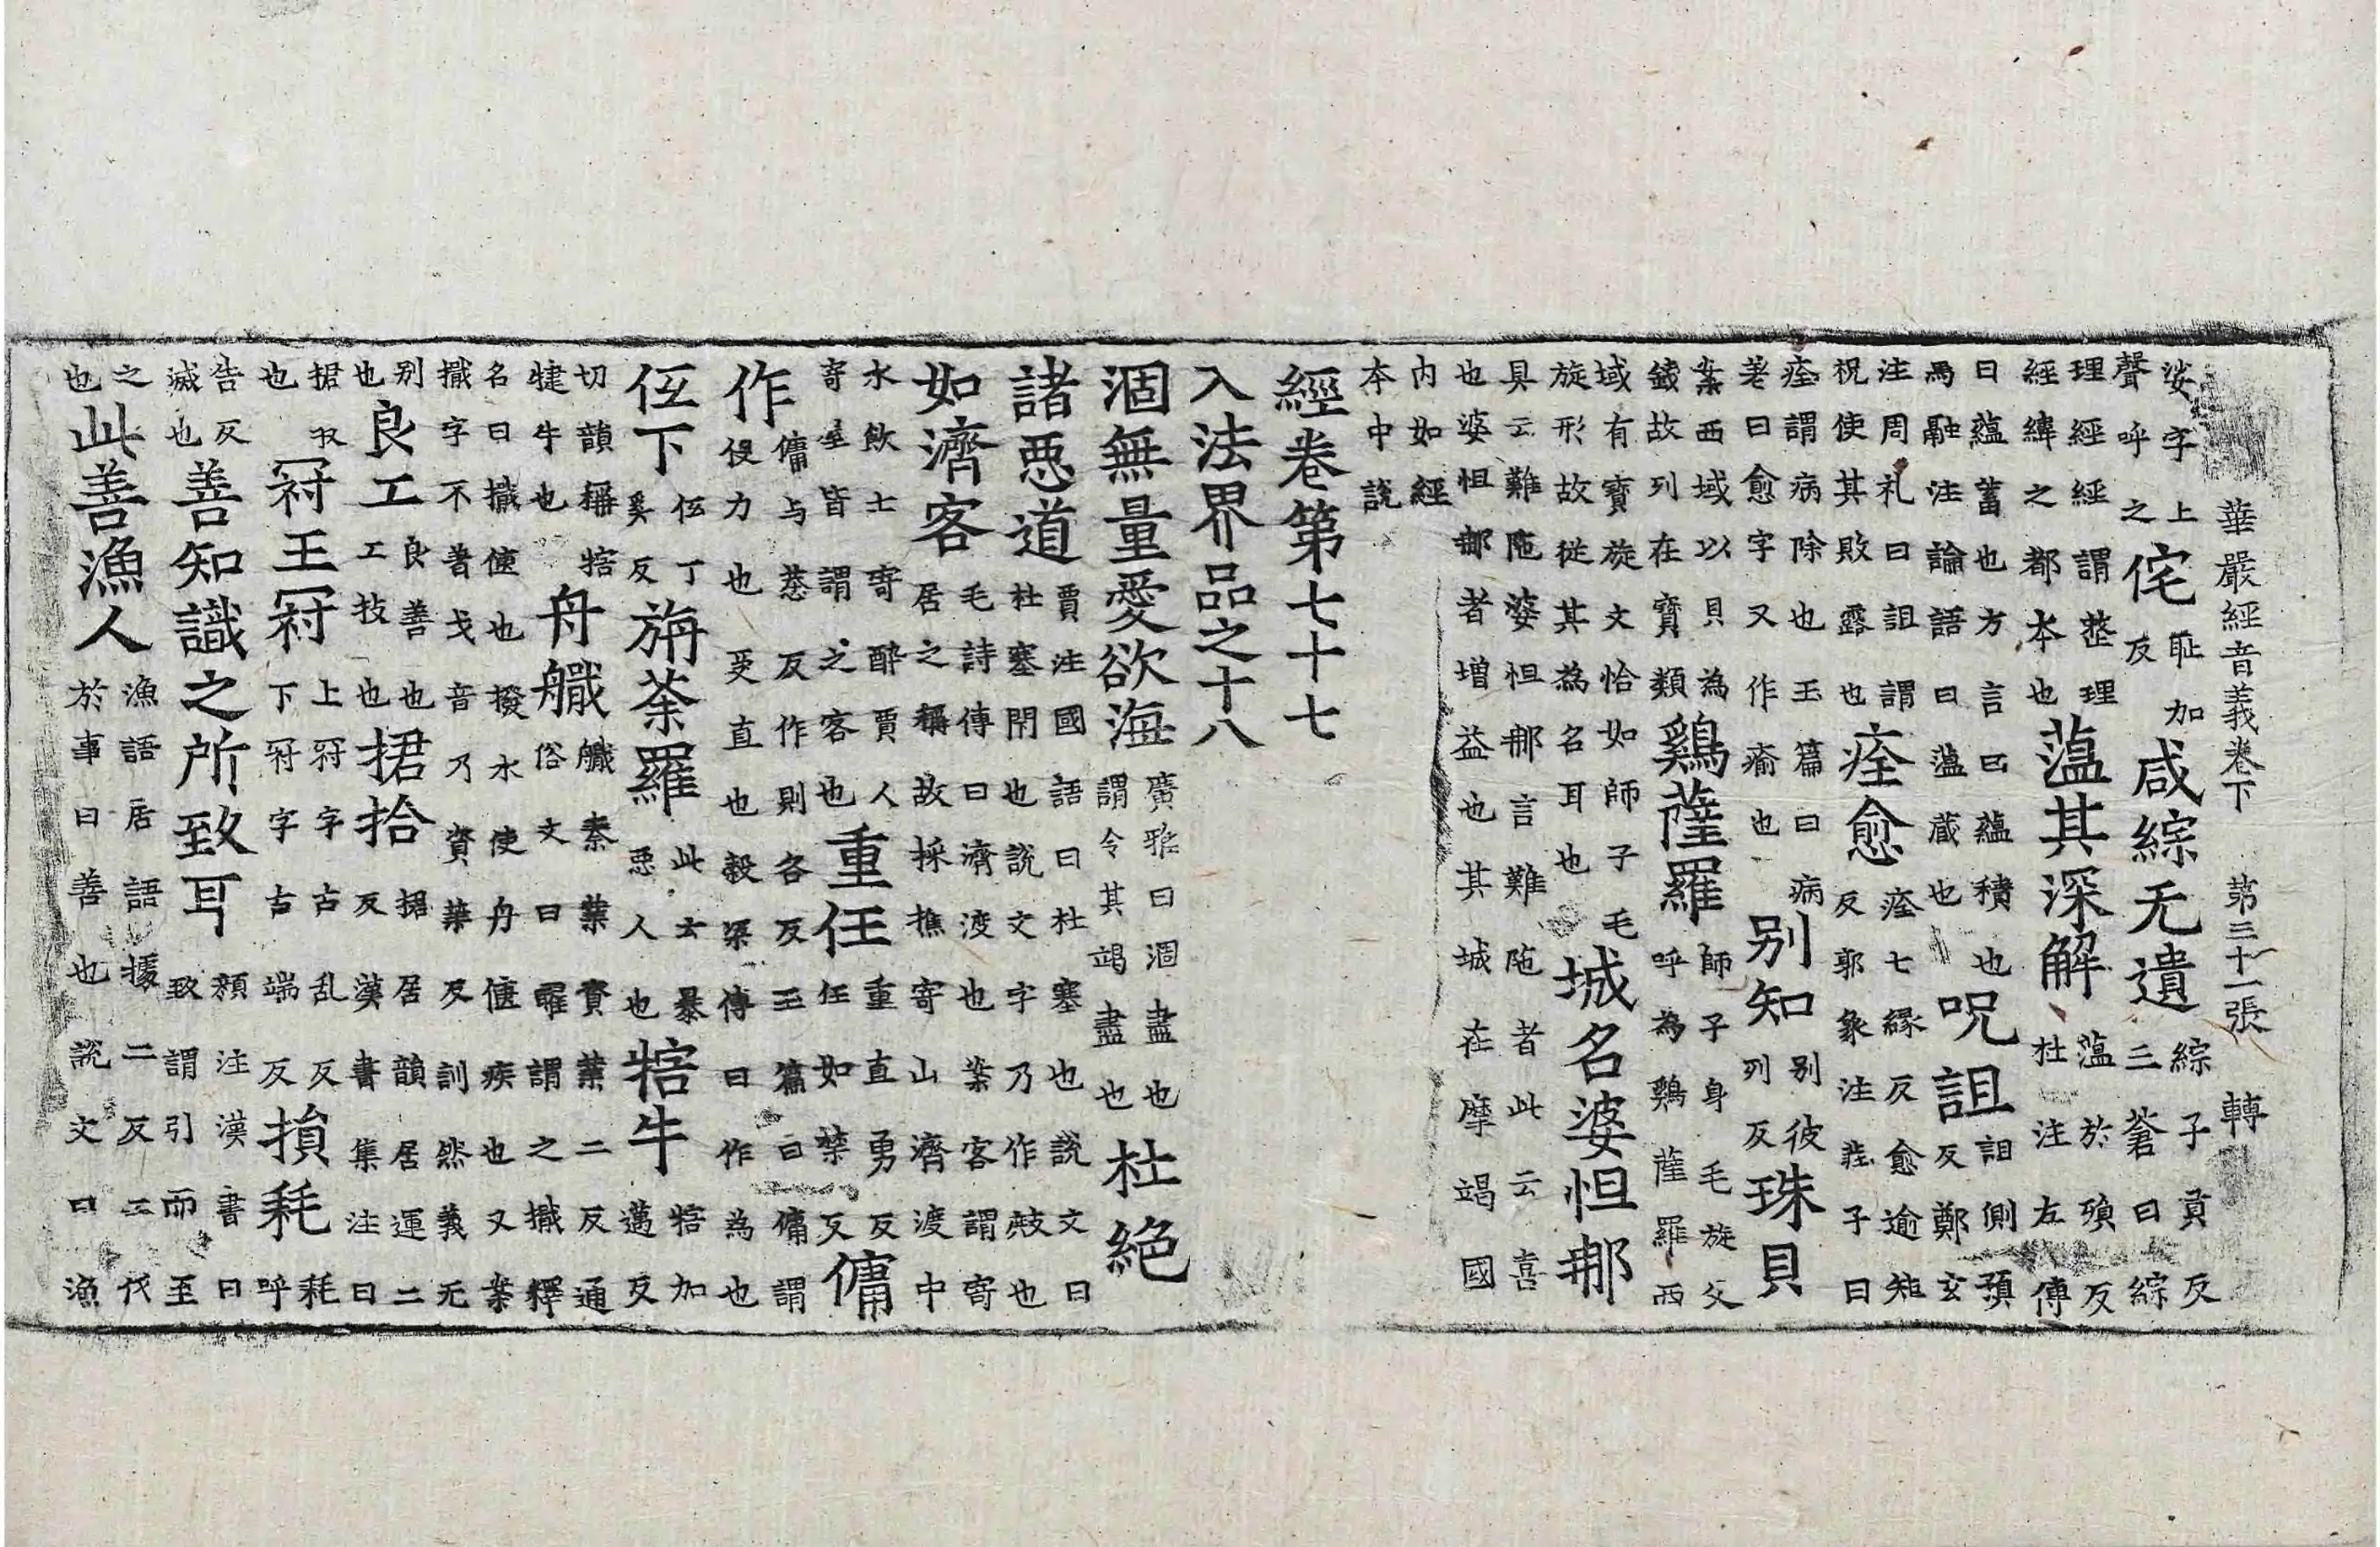 華嚴經音義卷下 第三十一張 轉
娑字上聲呼之侘恥加反咸綜无遺綜子貢反三蒼曰綜
理經經謂整理經緯之都本也蕰其深解蕰於殞反杜注左傳
曰蘊蓄也方言曰蘊積也馬融注論語曰蕰蔵也呪詛詛側預反鄭玄
注周礼曰詛謂祝使其敗露也痊愈痊七緣反愈逾矩反郭象注莊子曰
痊謂病除也玉篇曰病差曰愈字又作瘉也別知別彼列反珠貝
案西域以貝為錢故列在寶類鷄薩羅師子身毛旋文呼為鷄薩羅西
域有寶旋文恰如師子毛旋形故從其為名耳也城名婆怛那
具云難陁婆怛那言難陁者此云喜也婆怛那者增益也其城在摩竭國
内如經本中說
經卷第七十七
入法界品之十八
涸無量愛欲海廣雅曰涸盡也謂令其竭盡也杜絕
諸惡道賈注國語曰杜塞也說文曰杜塞閇也說文字乃作敊也
如濟客毛詩傳曰濟渡也案客謂寄居之稱故採樵寄山濟渡中
水飲士寄醉賈人寄坐皆謂之客也重任重直勇反任如禁反傭
作傭与恭反作則各反玉篇曰傭謂役力也受直也穀梁傳曰作為也
伍下伍丁奚反旃荼羅此云暴惡人也犗牛犗加邁反
切韻稱犗犍牛也舟檝檝秦葉資葉二反通俗文曰曜謂之檝釋
名曰檝使也撥水使舟健疾也又案檝字不著戈音乃資葉反訓然義无
別也良工良善也工技也捃拾捃居韻居運二反漢書集注曰
捃収也冠王冠上冠字古乱反下冠字古端反損耗耗呼
告反滅也善知識之所致耳顏注漢書曰致謂引而至
之也此善漁人漁語居語據二反工伐於事曰善也說文曰漁